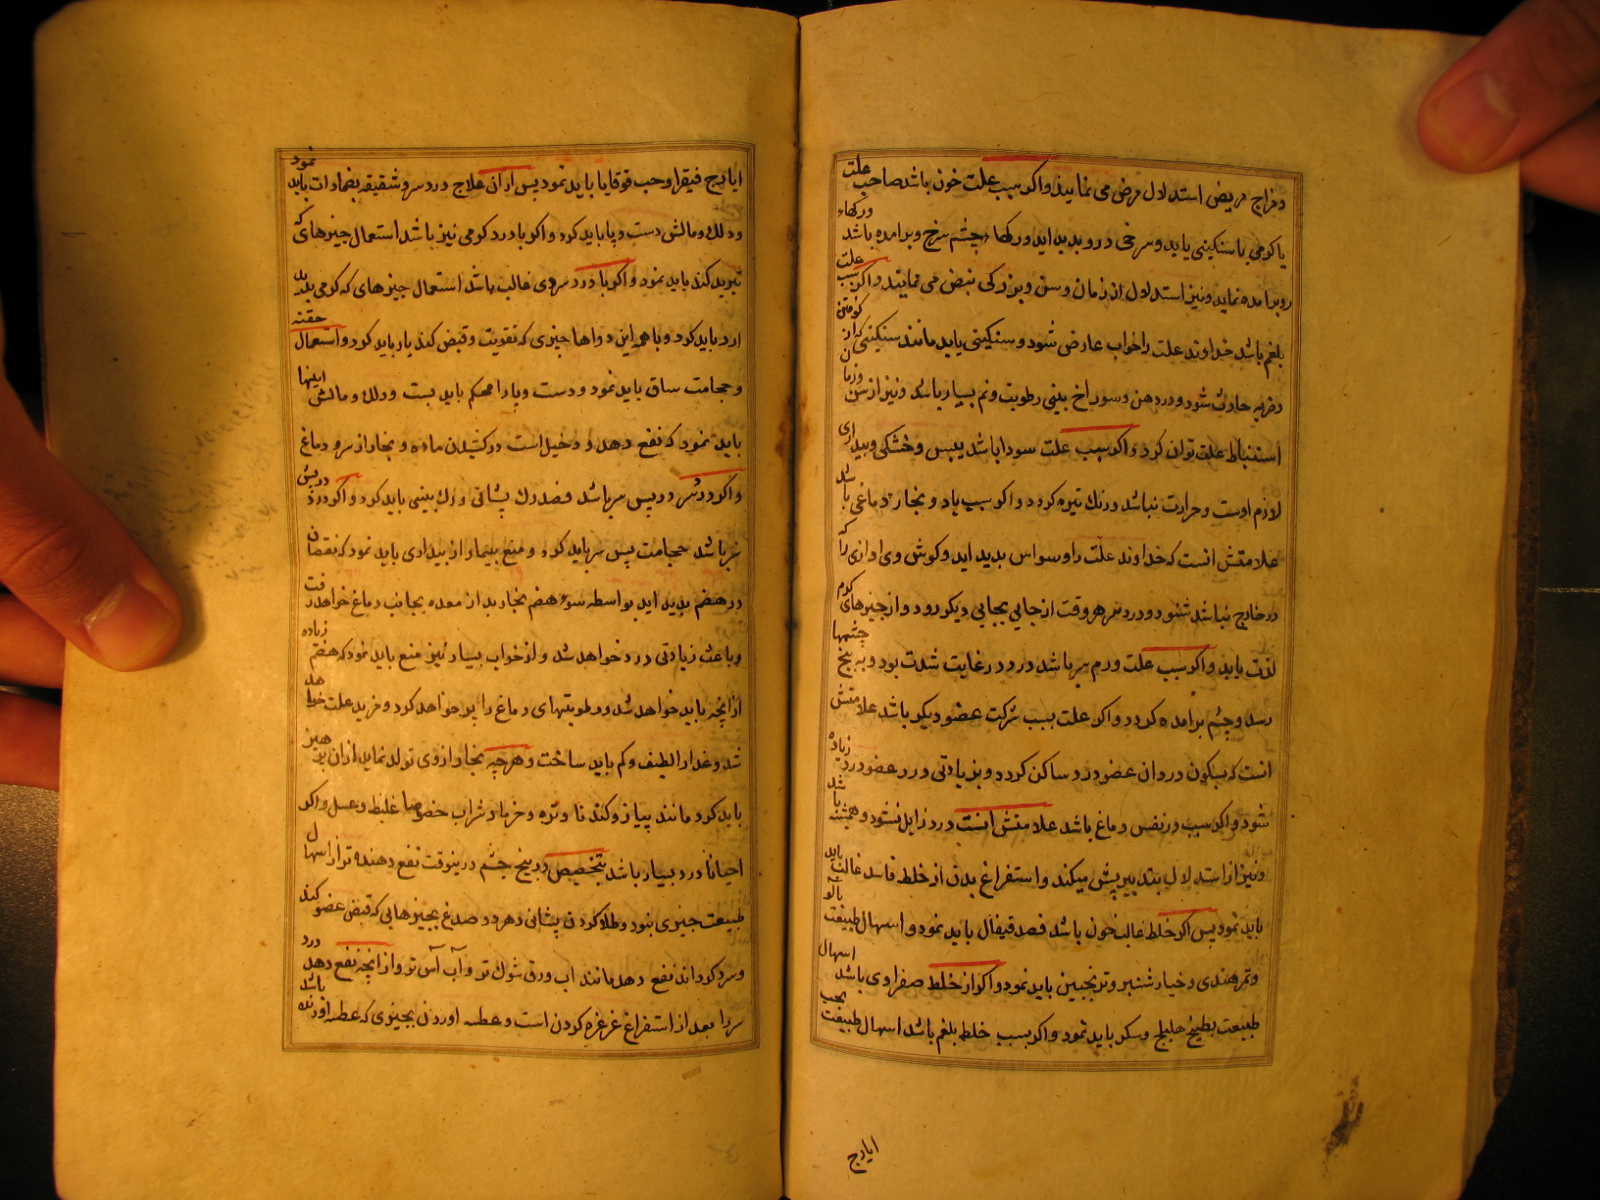 ومزاج مریض استدلال مرض می نمایند واکر سبب علت خون باشد صاحب علت
یا کرمی یا سنکینی یابد و سرخی در رو بدید اید و رکهاء چشم سرخ و برامده باشد و رکهاء
رو برامده نماید و نیز استدلال از زمان و سن و بزرکی نبض می نمایند و اکر سبب علت
بلغم باشد خداوند علت را خواب عارض شود و سنکینی یابد مانند سنکینی که از کوفتن
و ضربه حادث شود و در دهن و سوراخ بینی رطوبت و نم بسیار باشد و نیز از سن و زمان
استنباط علت توان کرد و اکر سبب علت سودا باشد یبس و خشکی و بیداری
لازم اوست و حرارت نباشد و رنك تیره کردد و اکر سبب باد و بخار دماغی باشد
علامتش انست که خداوند علت را وسواس بدید اید و کوش وی اوازی را که
در خارج نباشد شنود و درد سر هر وقت از جایی بجایی دیکر رود و از چیزهای کرم
لذت یابد و اکر سبب علت ورم سر باشد درد در غایت شدت بود و به بیخ چشمها
رسد و چشم برامده کردد و اکر علت بسبب شرکت عضو دیکر باشد علامتش
انست که بسکون دران عضو درد ساکن کردد و بزیادتی درد عضو درد زیاده
شود و اکر سبب در نفس دماغ باشد علامتش انست درد زایل نشود و همیشه باشد
و نیز از استدلال بتدبیر پیش میکند و استفراغ بدن از خلط فاسد غالب باید
باید نمود پس اکر خلط غالب خون باشد فصد قیفال باید نمود و اسهال طبیعت بالو
و تمر هندی و خیار شنبر و ترنجبین باید نمود و اکر از خلط صفراوی باشد اسهال
طبیعت بطبیخ هلیلج و سکر باید نمود و اکر بسبب خلط بلغم باشد اسهال طبیعت بحب
ایارج
ایارج فیقرا و حب قوقایا باید نمود پس ازان علاج درد سر و شقیقه بضمادات باید نمود
و دلك و مالش دست و پا باید کرد و اکر با درد کرمی نیز باشد استعمال چیزهای که
تبرید کند باید نمود و اکر با درد سردی غالب باشد استعمال چیزهای که کرمی بدید
ارد باید کرد و با همه این دواها چیزی که تقویت و قبض کند یار باید کرد و استعمال حقنه
و حجامت ساق باید نمود و دست و پا را محکم باید بست و دلك و مالش اینها
باید نمود که نفع دهد و دخیل است در کشیدن ماده و بخار از سر و دماغ
و اکر درد سر در پس سر باشد فصد رك پشانی و رك بینی باید کرد و اکر درد در پیش
سر باشد حجامت پس سر باید کرد و منع بیمار از بیداری باید نمود که نقصان
در هضم بدید اید بواسطه سوء هضم بخار بد از معده بجانب دماغ خواهد رفت
و باعث زیادتی درد خواهد شد و از خواب بسیار نیز منع باید نمود که هضم زیاده
از انچه باید خواهد شد و رطوبتهای دماغ را پر خواهد کرد و مزید علت خواهد
شد و غذا را لطیف و کم باید ساخت و هرچه بخار از وی تولد نماید ازان پرهیز
باید کرد مانند پیاز و کندنا و تره و خرما و شراب خصوصا غلیظ و عسل و اکر
احیانا درد بسیار باشد بتخصیص در بیخ چشم درینوقت نفع دهنده تر از اسهال
طبیعت چیزی نبود و طلا کردن پشانی و هر دو صدغ بچیزهایی که قبض عضو کند
و سرد کرداند نفع دهد مانند اب ورق شوك تر و آب آس تر و از انچه نفع دهد درد
سر را بعد از استفراغ غرغره کردن است و عطسه اوردن بچیزی که عطسه اورنده باشد